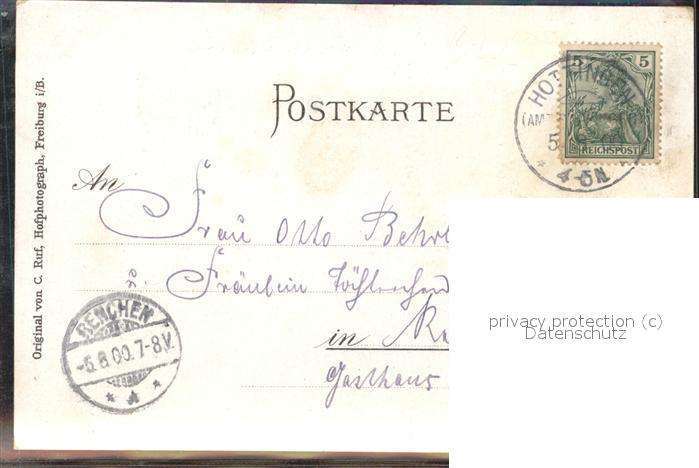 Original von C. Ruf, Hofphotograph, Freiburg i/B.
POSTKARTE
5 5
REICHSPOST
HOTTINGEN
(AMT
5
4-5N.
An
Frau Otto Behr
Fräulein
RENCHEN
-5.8.00.7-8V.
in Re
Gasthaus
privacy protection (c)
Datenschutz